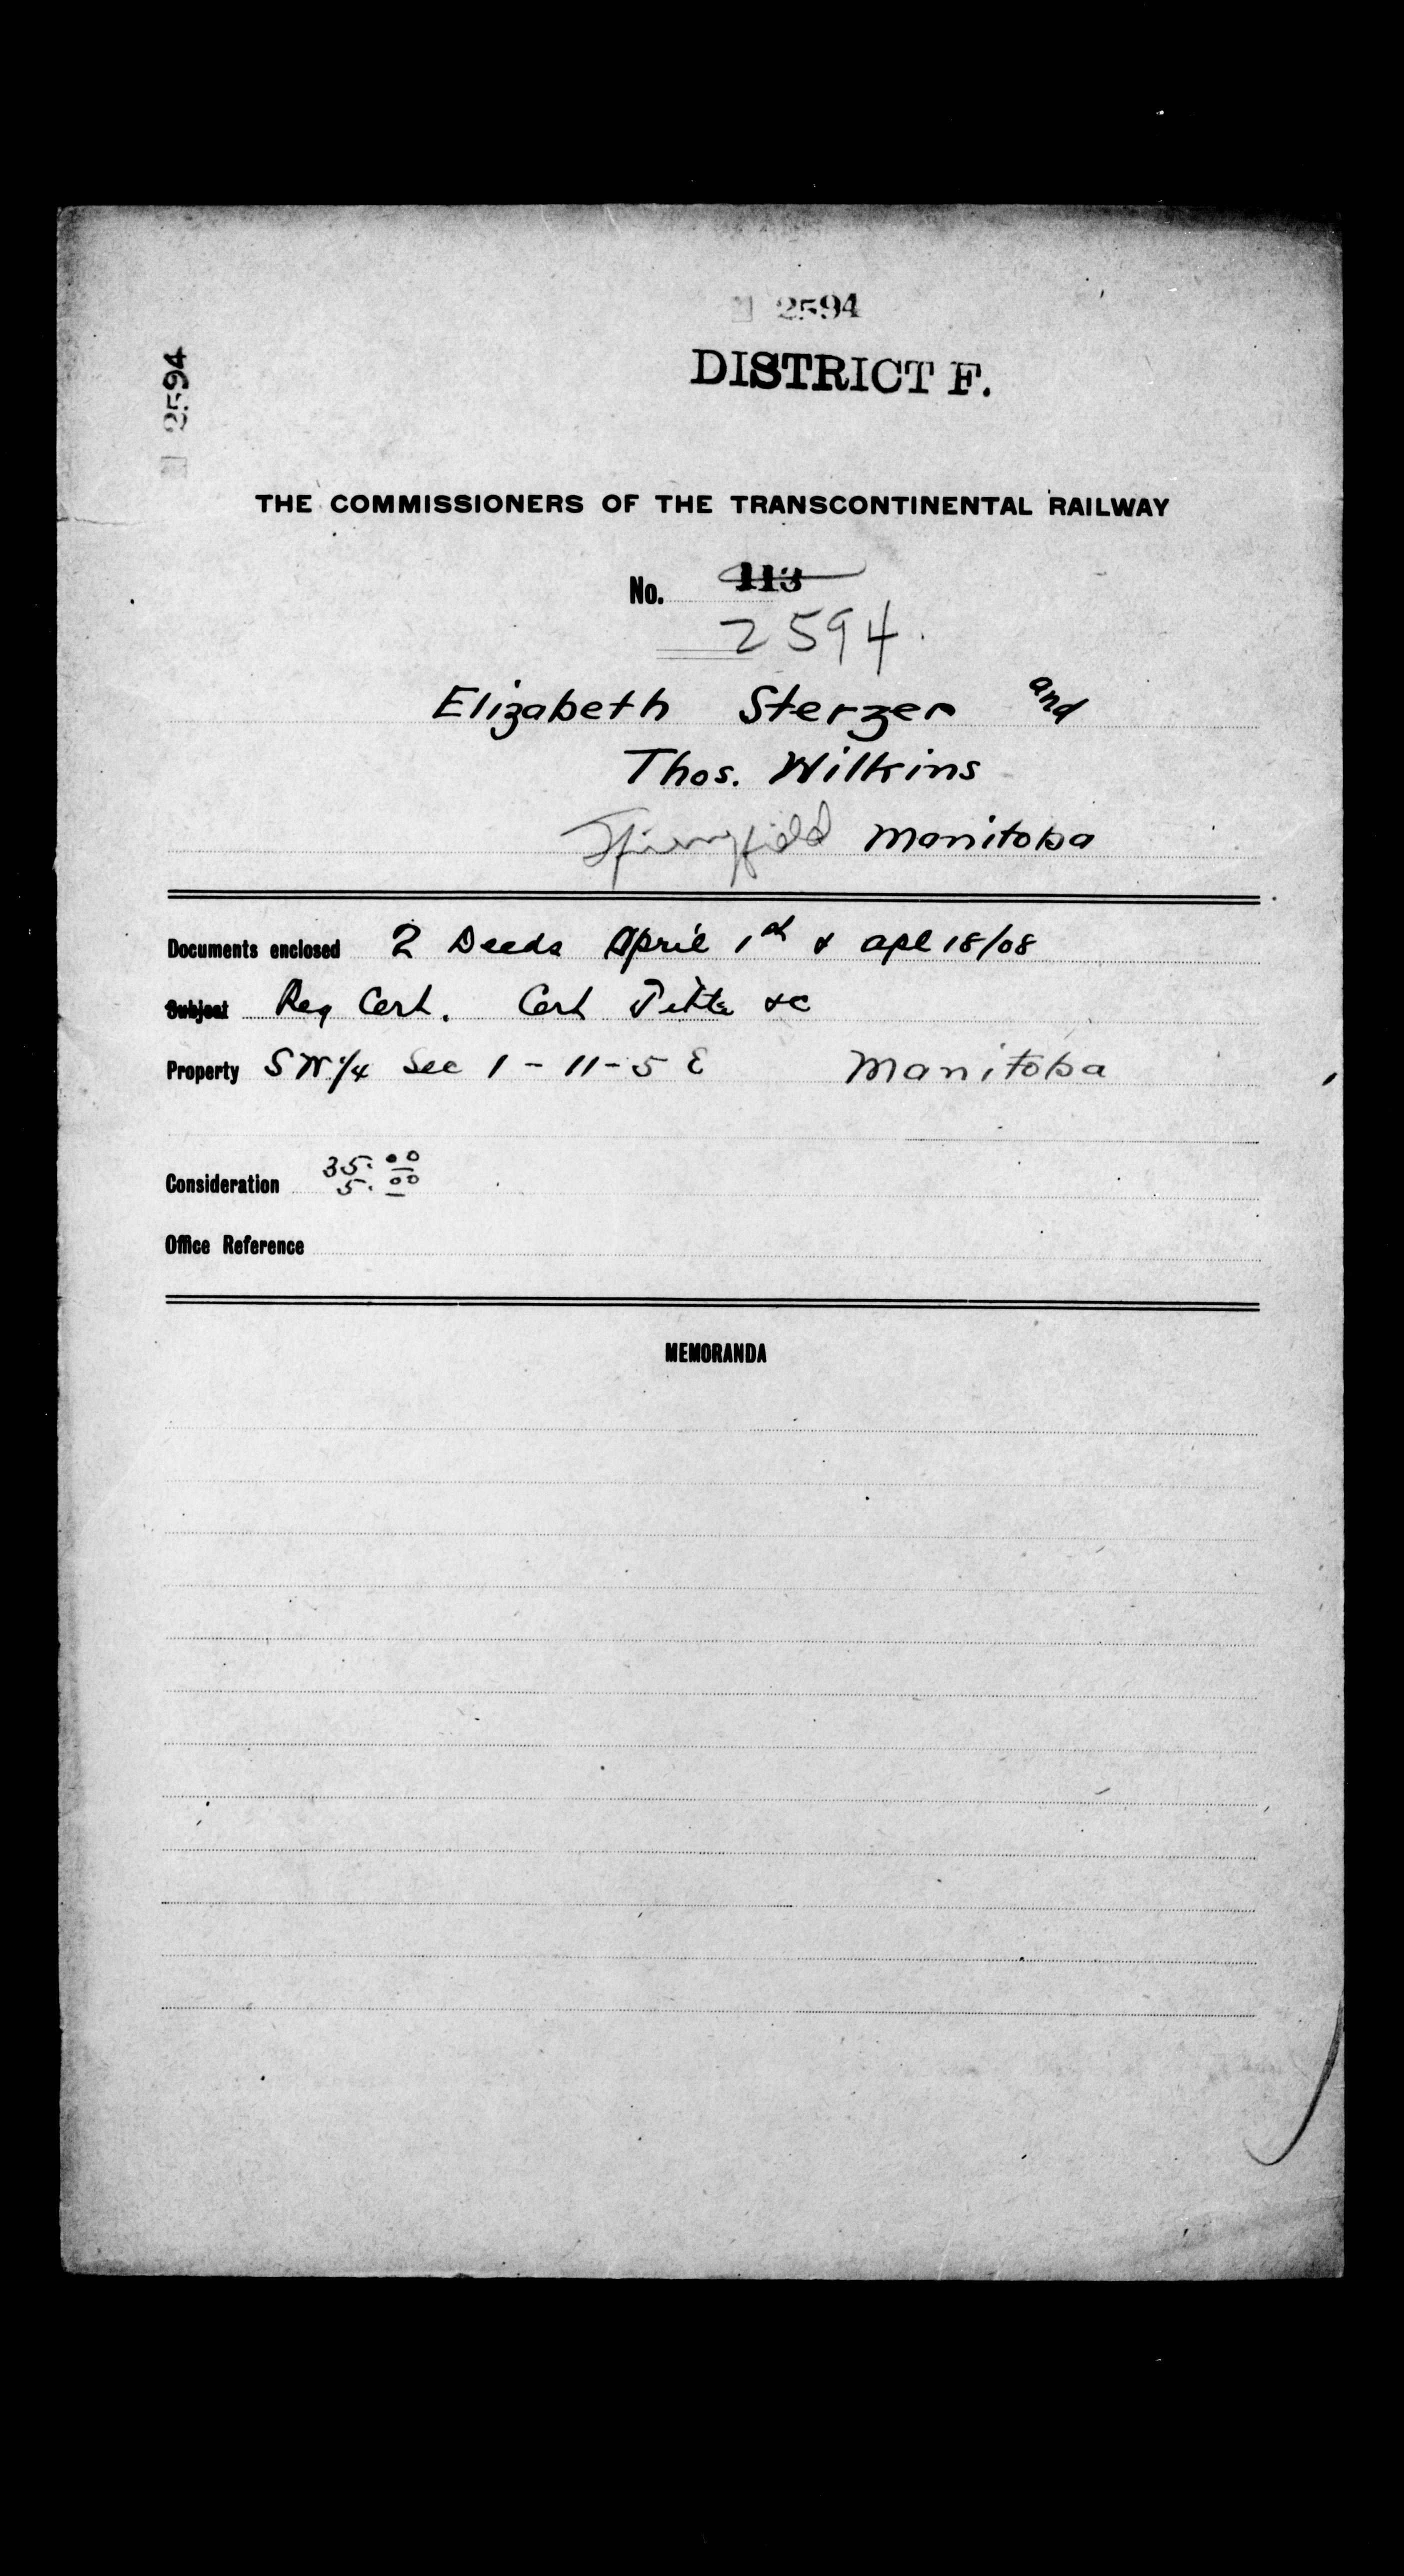 2594
2594
DISTRICT F.
THE COMMISSIONERS OF THE TRANSCONTINENTAL RAILWAY
No. 113
2594.
Elizabeth Sterzer and
Thos. Wilkins
Springfield Manitoba
Documents enclosed 2 Deeds April 1st & apl 18/08
Subject Reg Cert. Cert Title &c
Property SW 1/4 Sec 1 - 11 - 5 E Manitoba
Consideration 35.00
5.00
Office Reference
MEMORANDA